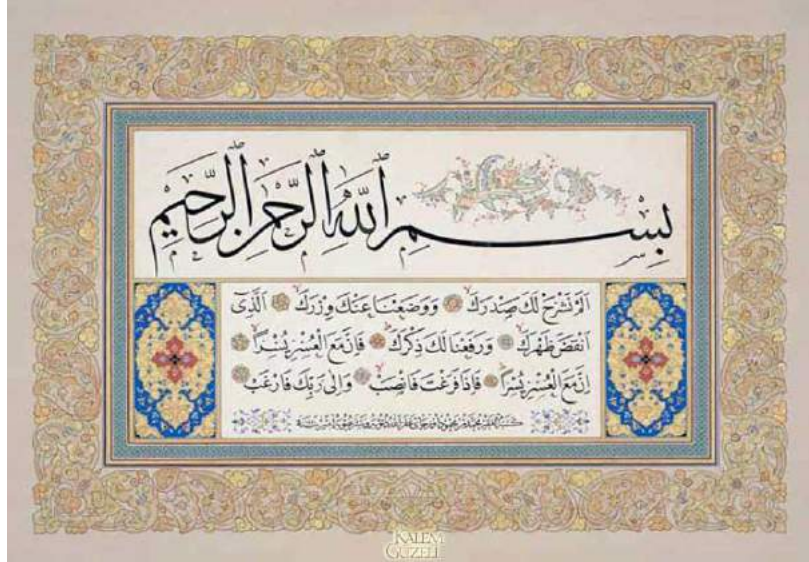 بِسْمِ اللّٰهِ الرَّحْمٰنِ الرَّحِيْمِ
اَلَمْ نَشْرَحْ لَكَ صَدْرَكَ وَوَضَعْنَا عَنْكَ وِزْرَكَ اَلَّذِٓى
اَنْقَضَ ظَهْرَكَ وَرَفَعْنَا لَكَ ذِكْرَكَ فَاِنَّ مَعَ الْعُسْرِ يُسْرًا
اِنَّ مَعَ الْعُسْرِ يُسْرًا فَاِذَا فَرَغْتَ فَانْصَبْ وَاِلٰى رَبِّكَ فَارْغَبْ
KALEM
GÜZELİ